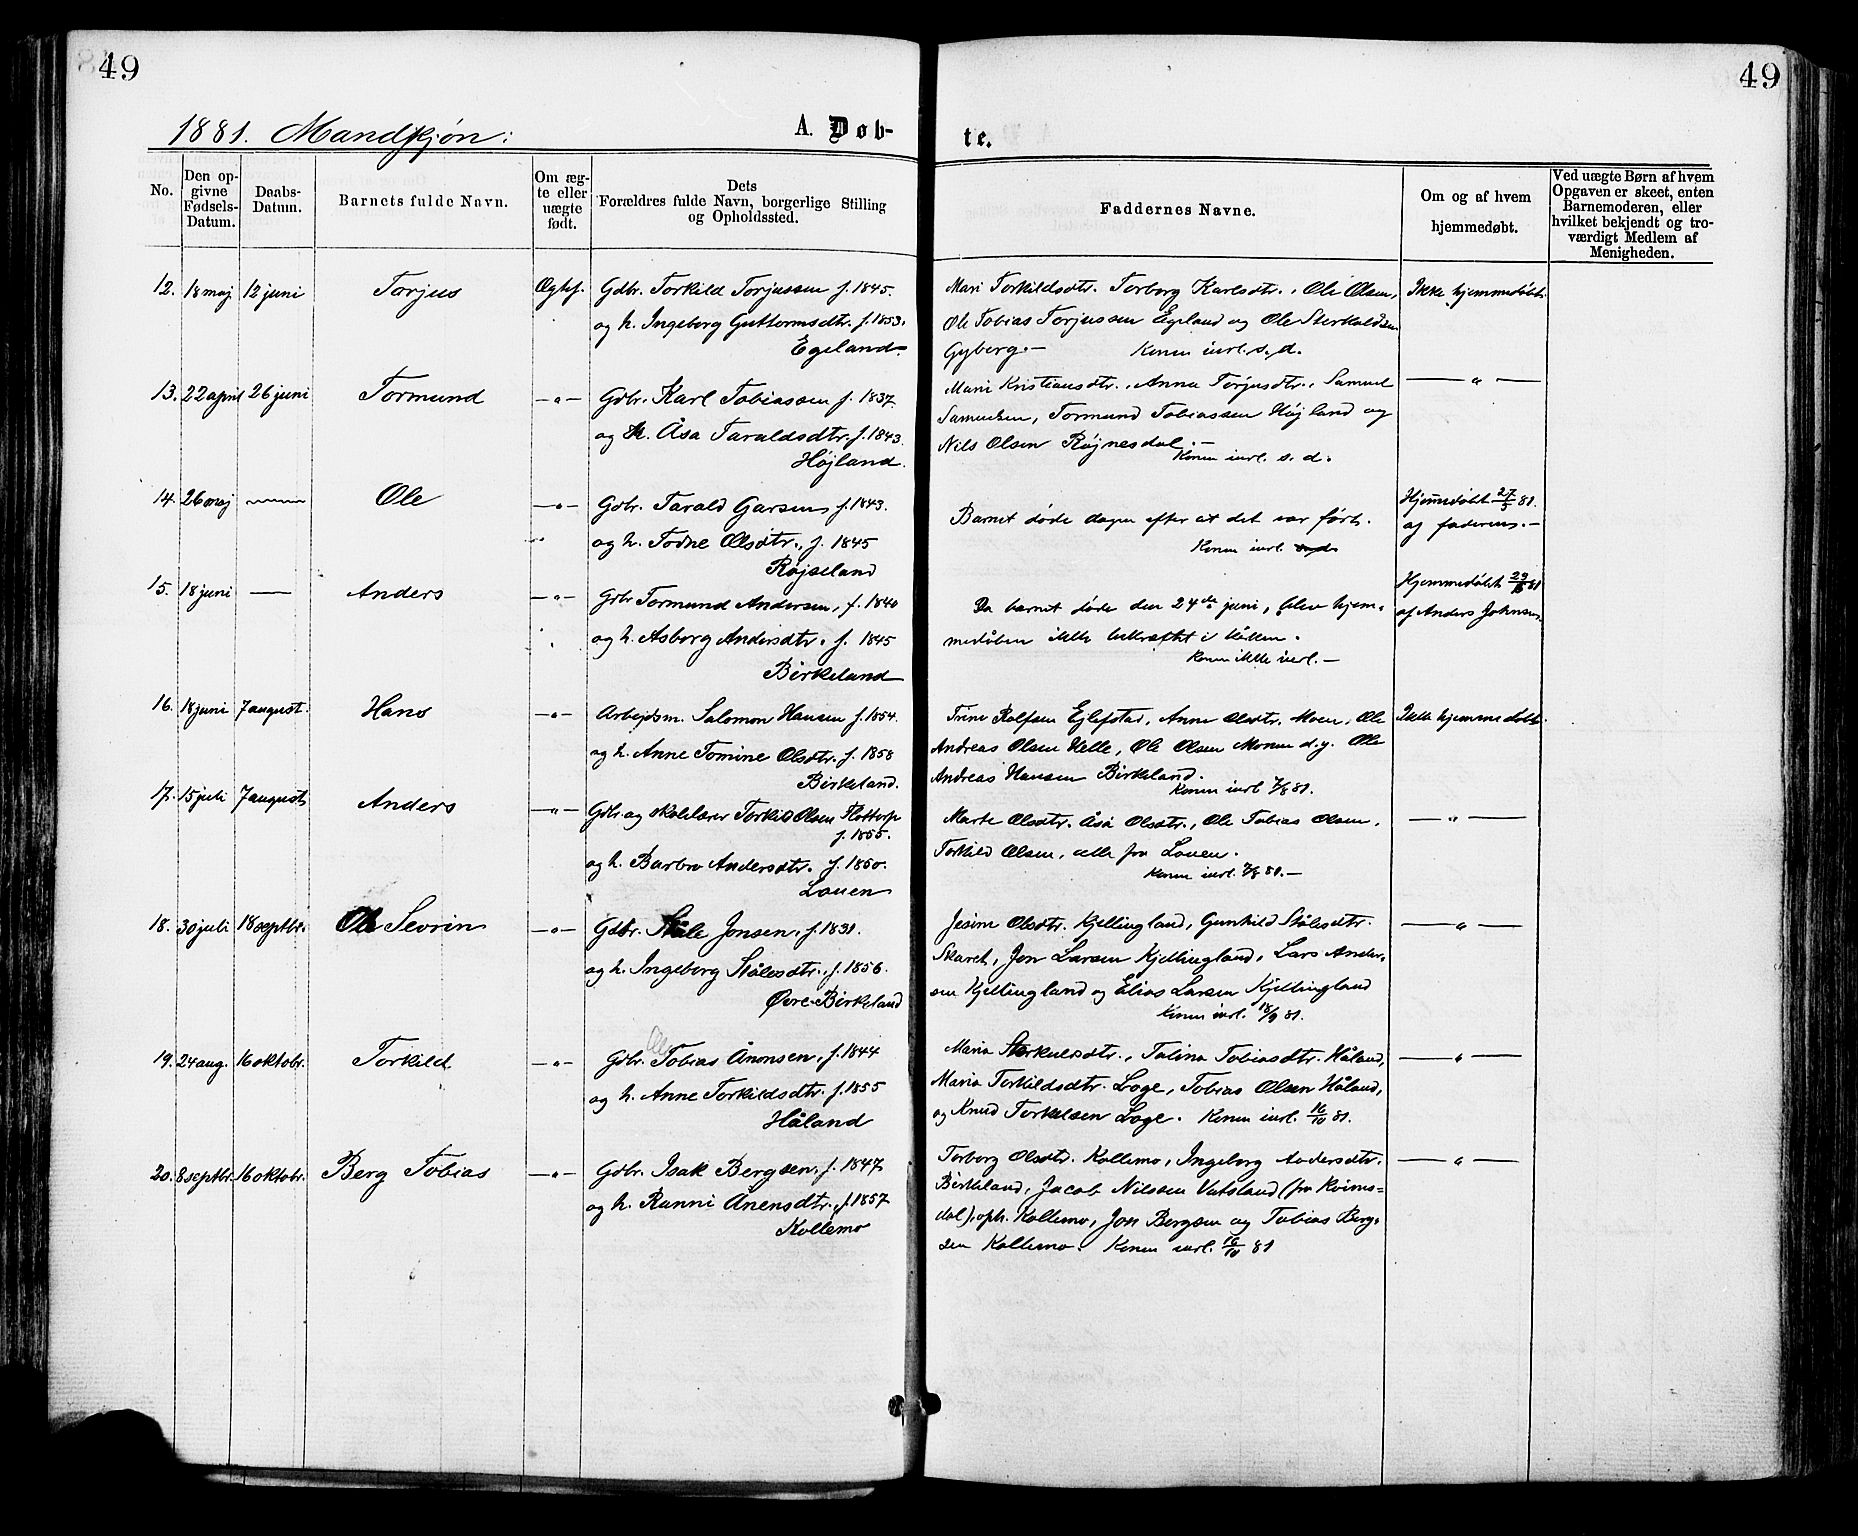 49
49
1881. Mandkjøn:
A. Døb-
te.
No.
Den op-
givne
Fødsels-
Datum.
Daabs-
Datum.
Barnets fulde Navn.
Om æg-
te eller
uægte
født.
Dets
Forældres fulde Navn, borgerlige Stilling
og Opholdssted.
Faddernes Navne.
Om og af hvem
hjemmedøbt.
Ved uægte Børn af hvem
Opgaven er skeet, enten
Barnemoderen, eller
hvilket bekjendt og tro-
værdigt Medlem af
Menigheden.
12. 18 maj 12 juni Torjus Ægtef. Gdbr. Torkild Torjussen f. 1845.
og h. Ingeborg Guttormsdtr. f. 1853.
Egeland.
Mari Torkildsdtr. Torborg Karlsdtr., Ole Olsen,
Ole Tobias Torjussen Egeland og Ole Sterkoldsen
Gyberg.— Konen inrl. s. d.
Ikke hjemmedøbt.
13. 22 april 26 juni Tormund —„— Gdbr. Karl Tobiassen f. 1837.
og h. Åsa Taraldsdtr. f. 1843.
Højland.
Mari Kristiansdtr., Anna Torjusdtr., Samuel
Samuelsen, Tormund Tobiassen Højland og
Nils Olsen Røjnesdal.—
Konen inrl. s. d.
—„—
14. 26 maj — Ole —„— Gdbr. Tarald Garsen f. 1843.
og h. Todne Olsdtr., f. 1845
Røjseland
Barnet døde dagen efter at det var født.
Konen inrl.
Hjemmedøbt 27/5 81.
af faderen.—
15. 18 juni — Anders —„— Gdbr Tormund Andersen, f. 1840
og h. Asborg Andersdtr. f. 1845
Birkeland
Da barnet døde den 24de juni, blev hjem-
medåben ikke bekræftet i kirken.
Konen ikke inrl.—
Hjemmedøbt 81
af Anders Johnsen.
16. 18 juni 7 august. Hans —„— Arbejdsm. Salomon Hansen f. 1854.
og h. Anne Tomine Olsdtr. f. 1858
Birkeland.
Trine Rolfsen Ejlefstad, Anne Olsdtr. Moen, Ole
Andreas Olsen Helle, Ole Olsen Monen d.y. Ole
Andreas Hansen Birkeland.
Konen inrl 7/8 81.
Ikke hjemmedøbt.
17. 15 juli 7 august Anders —„— Gdbr og skolelærer Torkild Olsen Flottorp
f. 1855.
og h. Barbro Andersdtr. f. 1850.
Lauen
Marte Olsdtr. Åsa Olsdtr., Ole Tobias Olsen,
Torkild Olsen, alle fra Lauen.
Konen inrl. 7/8 81.—
—„—
18. 30 juli 18 septbr. Ole Sevrin —„— Gdbr. Ståle Jonsen, f. 1831.
og h. Ingeborg Stålesdtr., f. 1856.
Øvre-Birkeland
Jesine Olsdtr. Kjellingland, Gunhild Stålesdtr.
Skaret, Jon Larsen Kjellingland, Lars Ander-
sen Kjellingland og Elias Larsen Kjellingland
Konen inrl. 18/9 81.
—„—
19. 24 aug. 16 oktobr. Torkild —„— Gdbr. Tobias Ånonsen, f. 1844
og h. Anne Torkildsdtr. f. 1855
Håland
Maria Sterkulsdtr., Talina Tobiasdtr. Håland,
Maria Torkildsdtr. Loge, Tobias Olsen Håland,
og Knud Torkelsen Loge. Konen inrl. 16/10 81.
—„—
20. 8 septbr. 16 oktobr. Berg Tobias —„— Gdbr. Isak Bergsen, f. 1847
og h. Ranni Ånensdtr., f. 1857
Kollemo
Torborg Olsdtr. Kollemo, Ingeborg Andersdtr.
Birkeland, Jacob Nilssen Vatsland (fra Kvines-
dal), oph. Kollemo, Jon Bergsen og Tobias Berg-
sen Kollemo. Konen inrl. 16/10 81
—„—